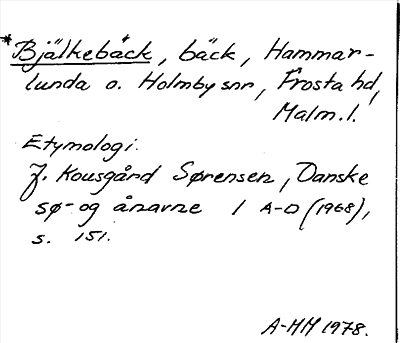 *Bjälkebäck, bäck, Hammar-
lunda o. Holmby snr, Frosta hd,
Malm. l.
Etymologi.
J. Kousgård Sørensen, Danske
sø- og ånavne 1 A-D (1968),
s. 151.
A-MH 1978.